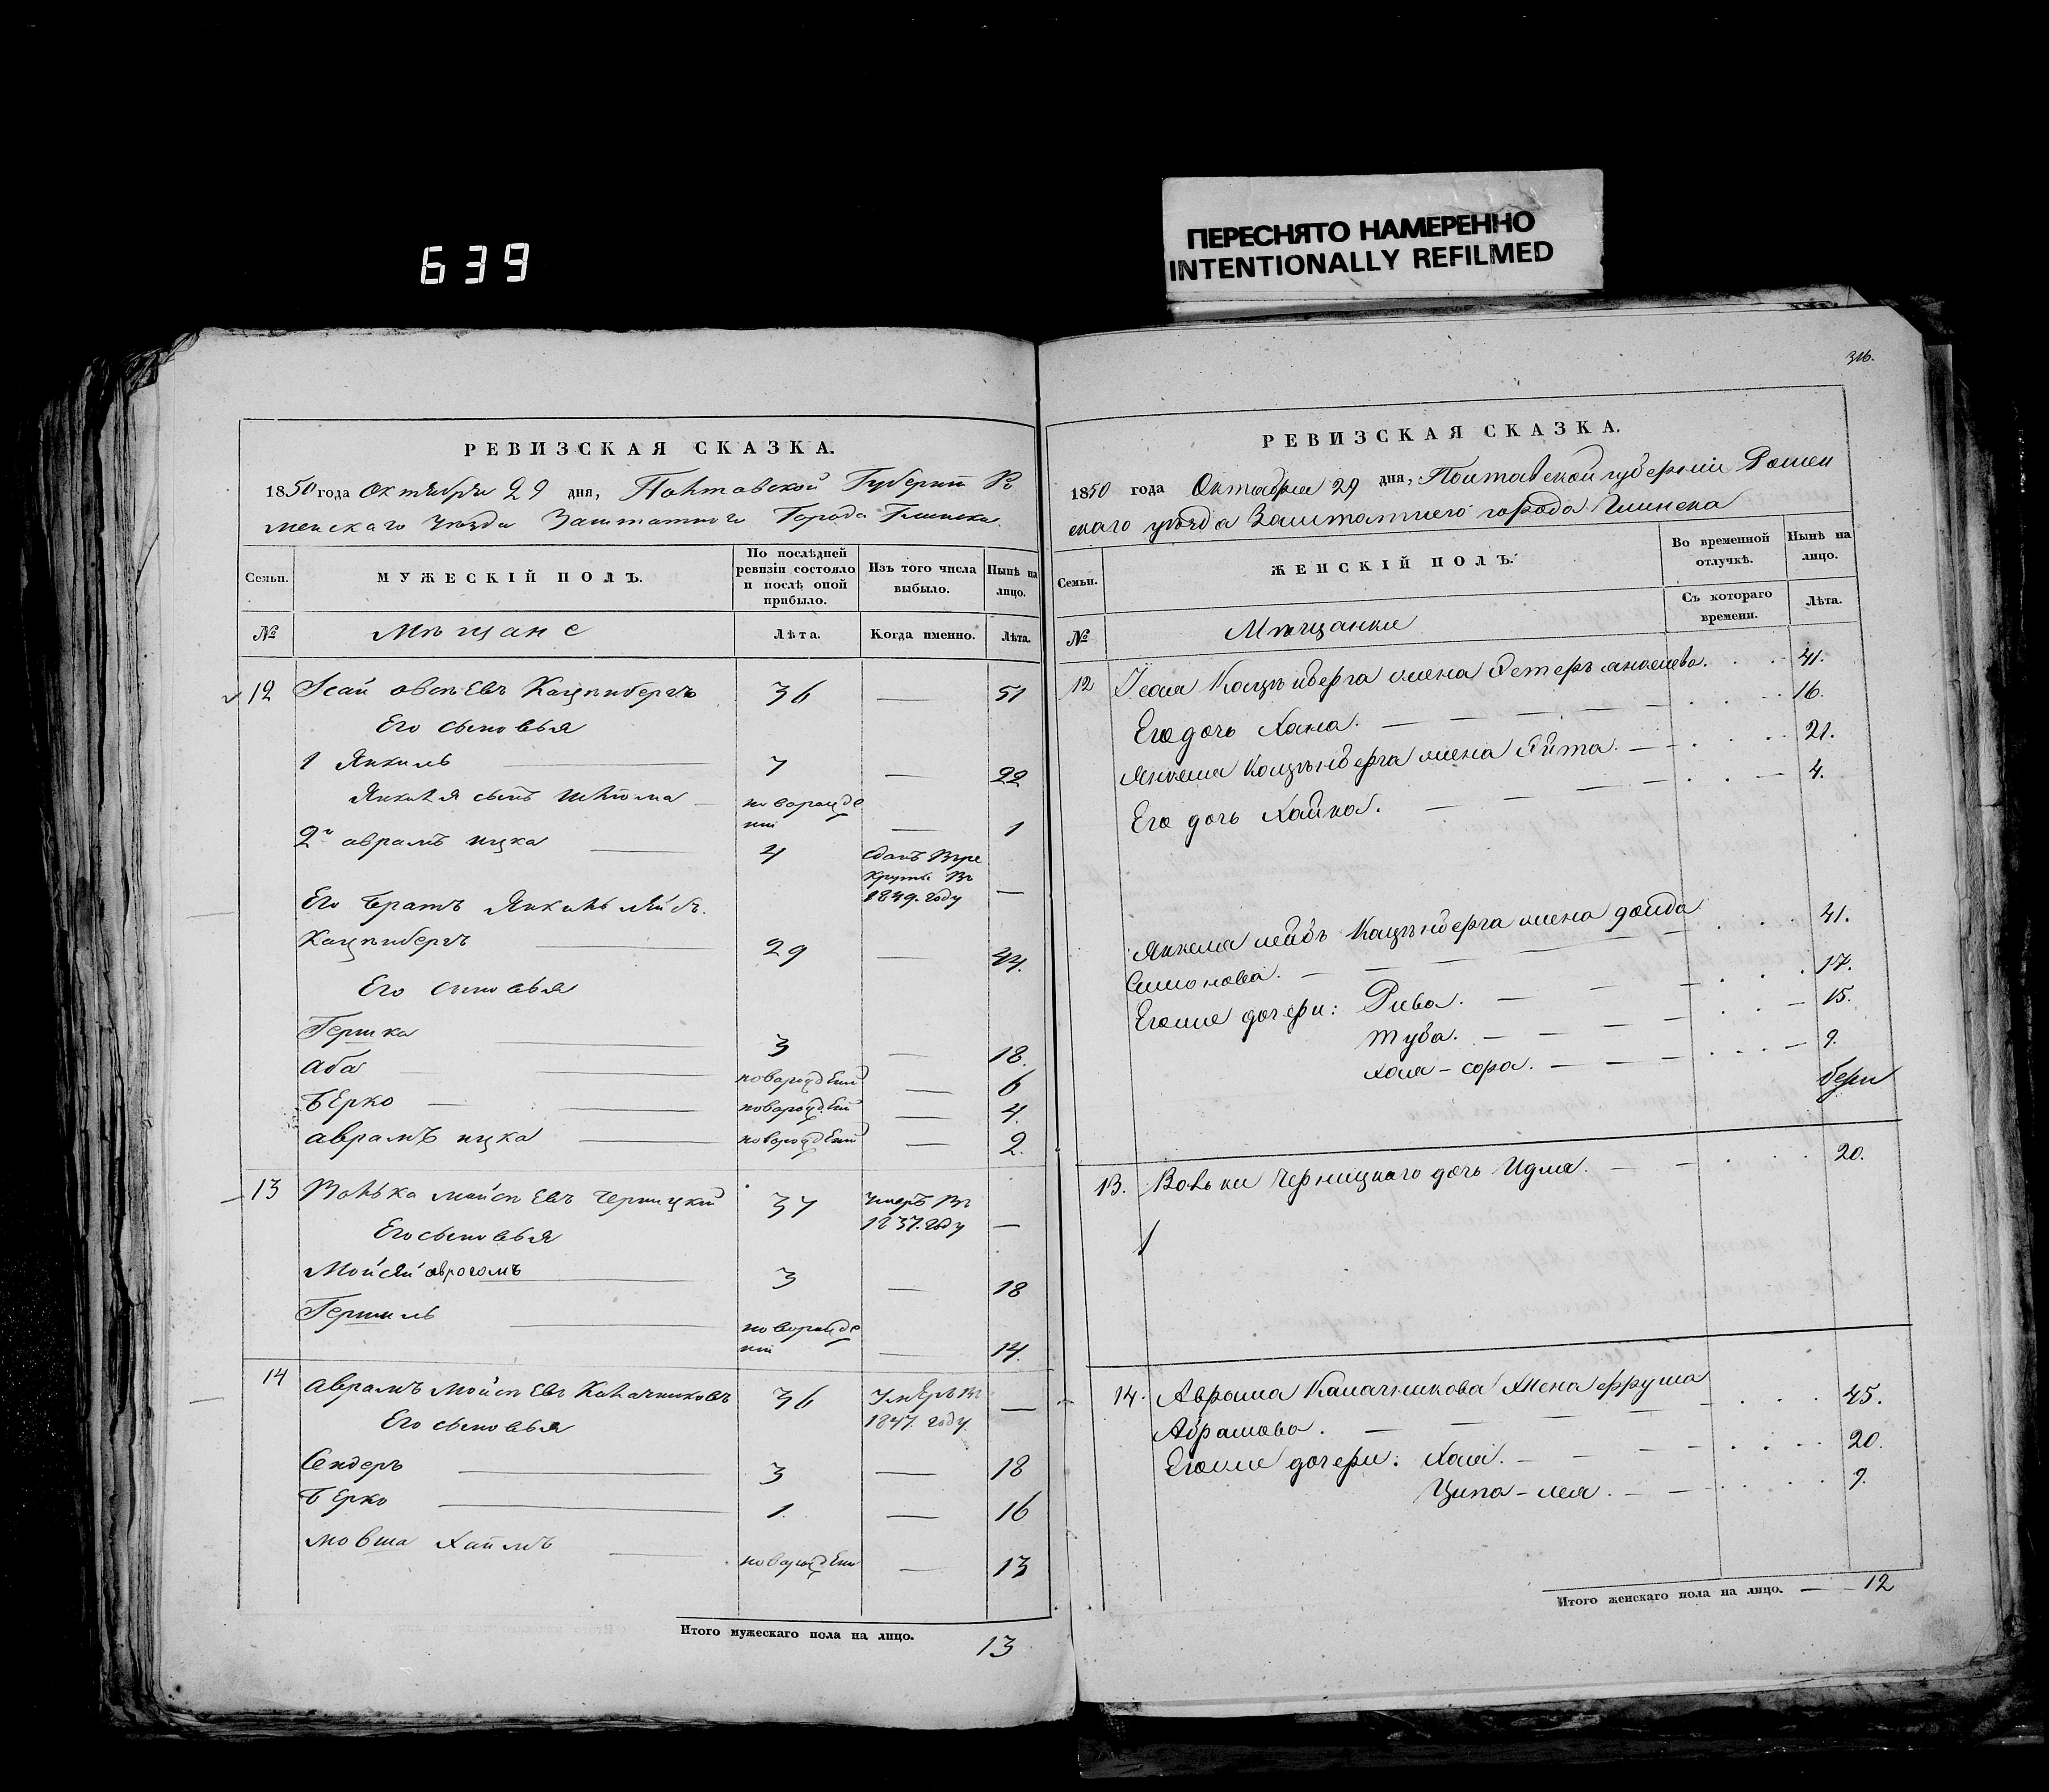 639
ПЕРЕСНЯТО НАМЕРЕННО
INTENTIONALLY REFILMED
316.
РЕВИЗСКАЯ СКАЗКА.
1850 года Октября 29 дня, Полтавской Губернии Ро
менскаго уезда Заштатного Города Глинска.
Семьи. МУЖЕСКІЙ ПОЛЪ. По послѣдней ревизіи состояло и послѣ оной прибыло. Изъ того числа выбыло. Нынѣ на лицо.
№ Мѣщане Лѣта. Когда именно. Лѣта.
12 Исай Овсѣевъ Каценбергъ 36 — 51
Его сыновья
1 Янкиль 7 — 22
Янкиля сынъ Шлiома новорожде
ный — 1
2й Аврамъ ицка 4 сданъ Врре
круты Въ
1849. году —
Его братъ Янкиль лейбъ
Каценбергъ 29 — 44.
Его сыновья
Гершка 3 — 18.
Аба новорожденый — 6
Берко — новорожденый — 4.
Аврамъ ицка новорожденый — 2.
13 Волька Мойсѣевъ Черницкий 37 Умеръ Въ
1837. году —
Его сыновья
Мойсей аврогамъ 3 — 18
Гершиль новорожде
ный — 14.
14 Аврамъ Мойсѣевъ Калачниковъ 36 Умеръ Въ
1847. году —
Его сыновья
Сендеръ 3 — 18
Берко 1. — 16
Мовша Хаимъ новорожденый — 13
Итого мужескаго пола на лицо. 13
РЕВИЗСКАЯ СКАЗКА.
1850 года Октября 29 дня, Полтавской губернии Ромен
скаго уѣзда Заштатнего города Глинска
Семьи. ЖЕНСКІЙ ПОЛЪ. Во временной отлучкѣ. Нынѣ на лицо.
№ Мѣщанки Съ котораго времени. Лѣта.
12 Исая Каценберга жена Эстеръ янкелева. 41.
Его дочь Хана. 16.
Янкеля Каценберга жена Эйта. 21.
Его дочь Хайка. 4.
Янкеля лейбъ Каценберга жена Двейда
Симонова. 41.
Егоже дочери: Рива. 17.
Туба. 15.
Хая-сора. 9.
13. Вольки Черницкаго дочь Идля. 20.
14. Аврама Калачникова жена Фрума
Абрамова. 45.
Егоже дочери: Хая. 20.
Ципа-лея. 9.
Итого женскаго пола на лицо. — 12